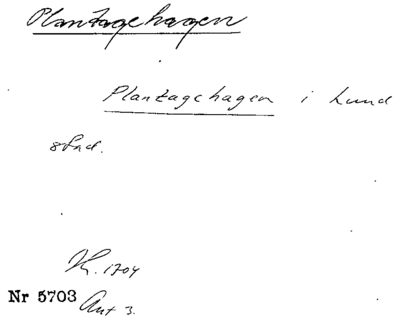 Plantagehagen
Plantagehagen i Lund
stad.
K. 1704
Nr 5703 Ant 3.